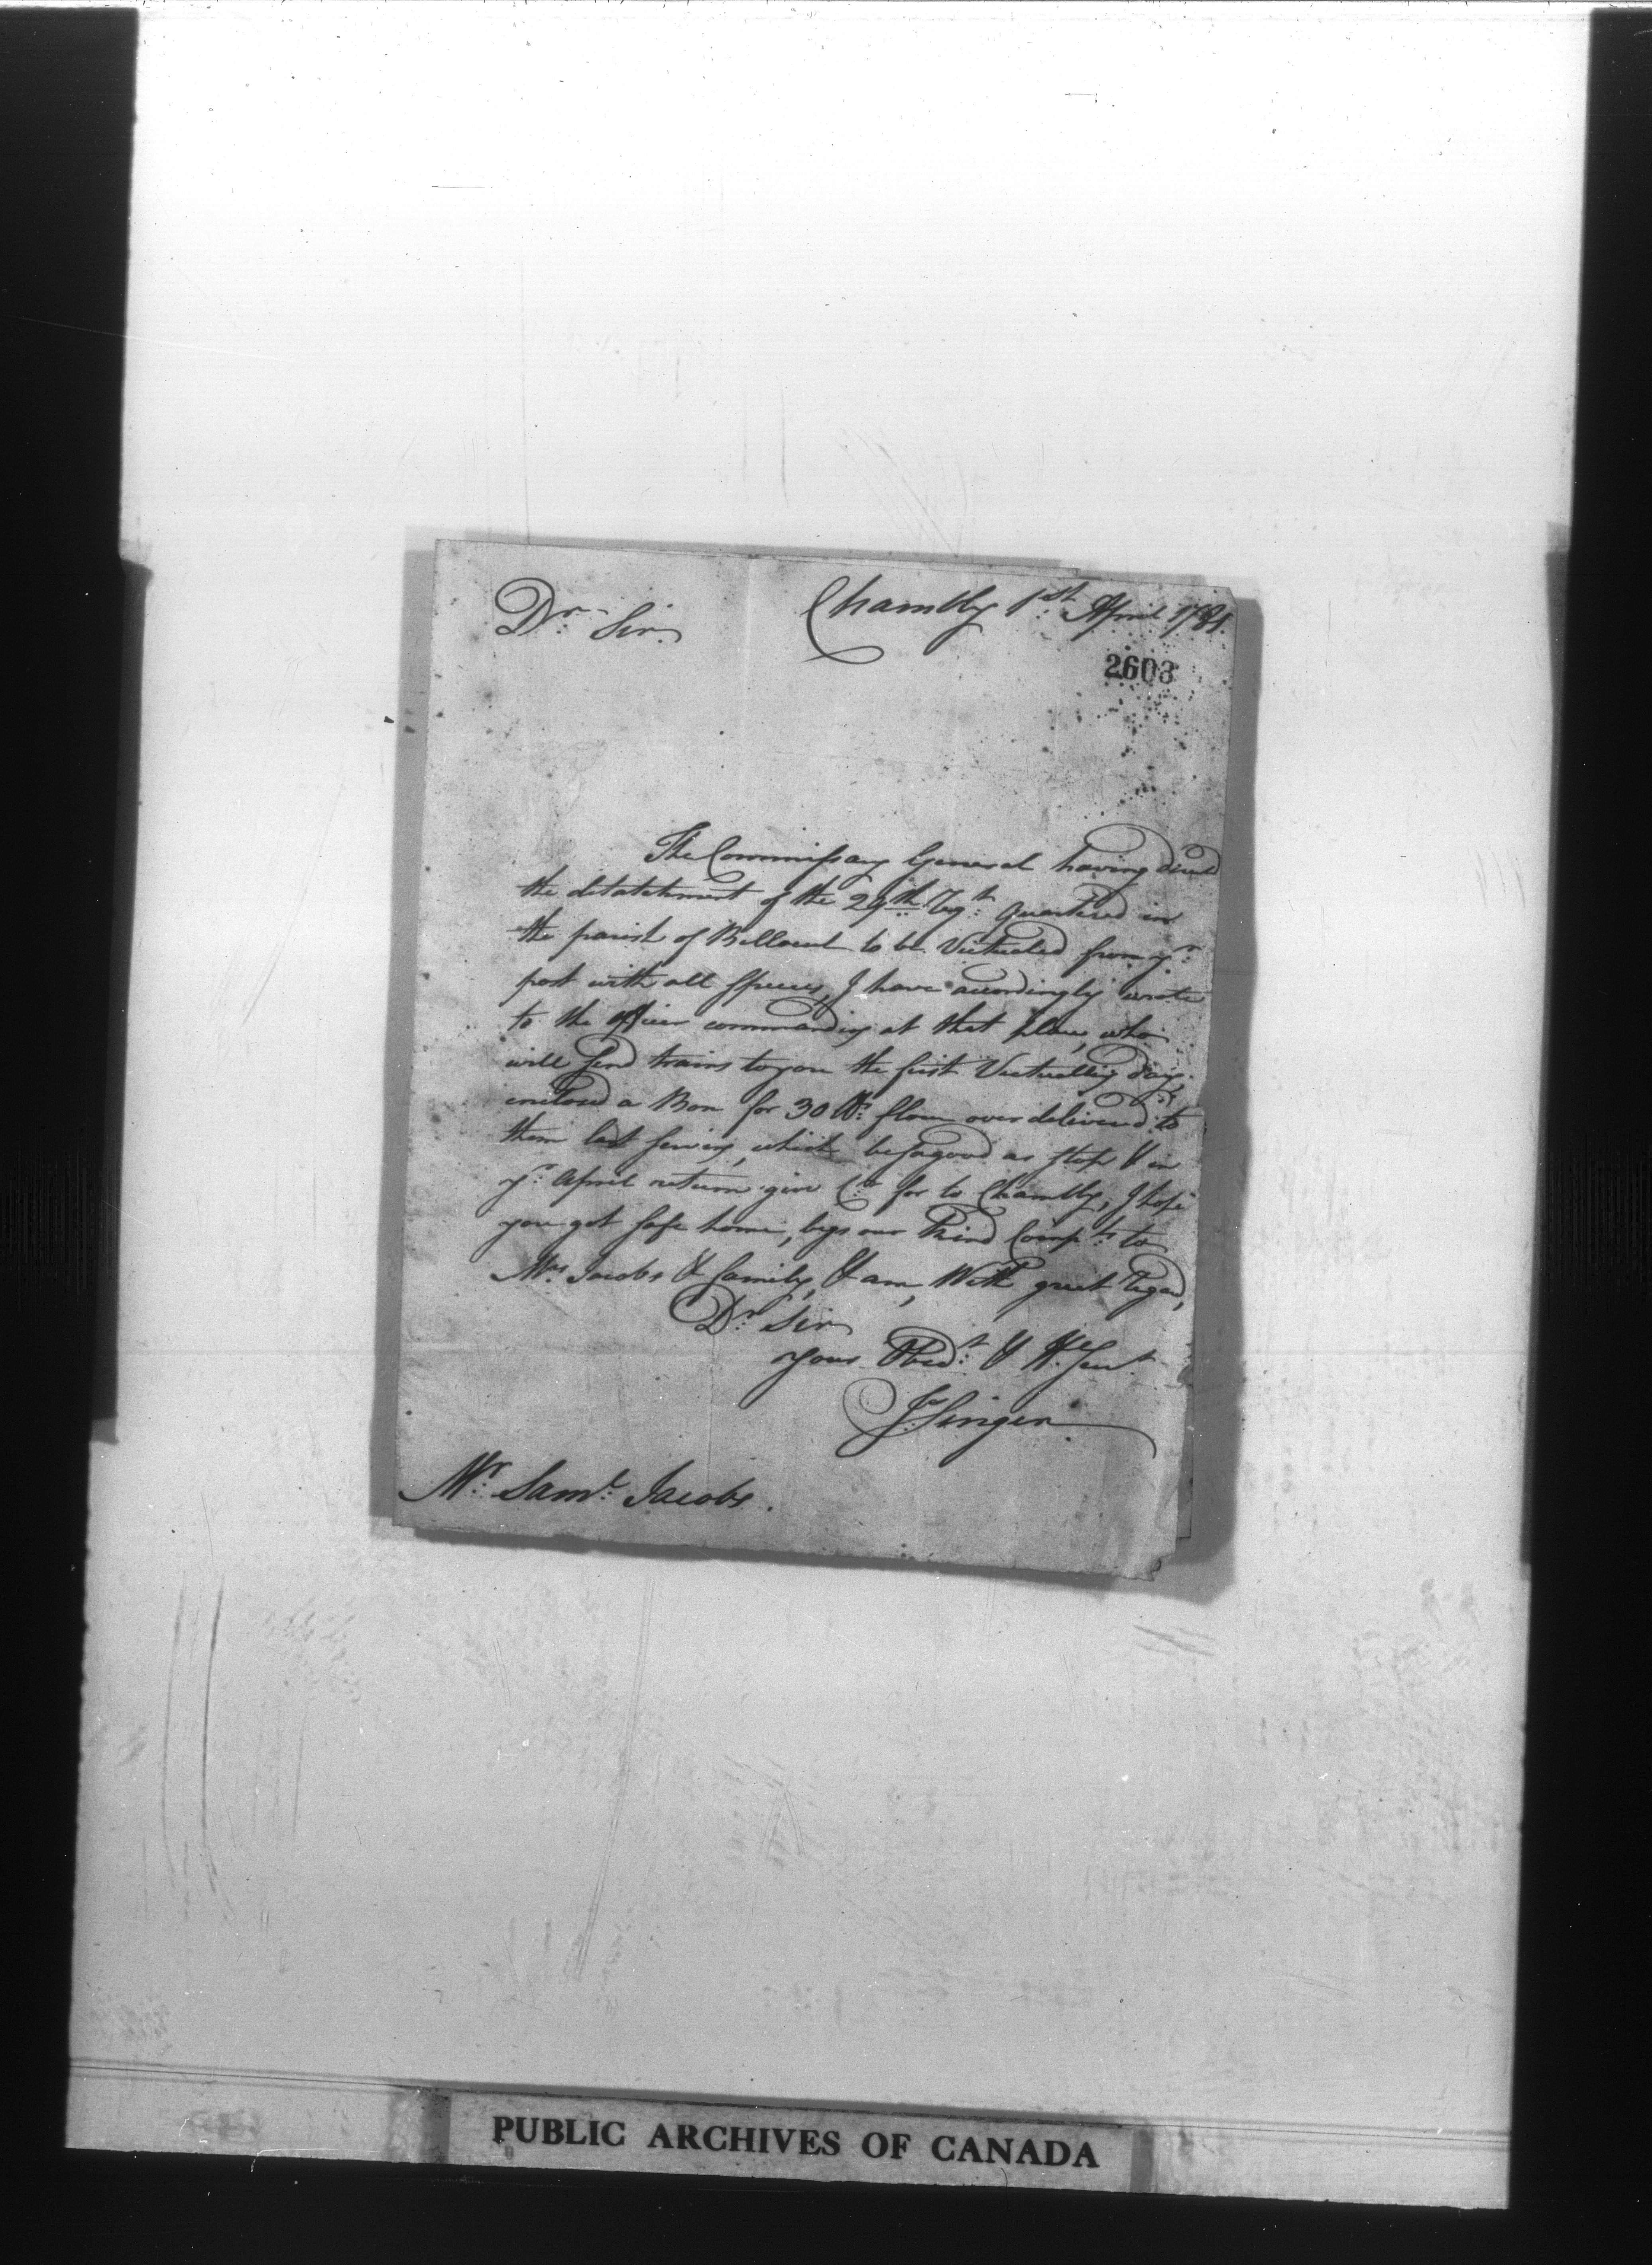 Dr. Sir. Chambly 1st April 1781.
2603
The Commissary General having directed
the detatchment of the 29th Regt. Quartered in
the parish of Belloeul to be Victualed from yr.
post with all Speices, I have accordingly wrote
to the officer commanding at that place, who
will send trains to you the first Victualling day,
inclosed a Bon for 30 lb: flour over delivered to
them last serving, which be so good as stop & in
yr. April return give Cr. for to Chambly, I hope
you got safe home, begs our kind Compts. to
Mrs. Jacobs & family, & am, With great Regard,
Dr. Sir
Your Obedt. & H'le Servt.
Jn. Singer
Mr. Saml. Jacobs.
PUBLIC ARCHIVES OF CANADA